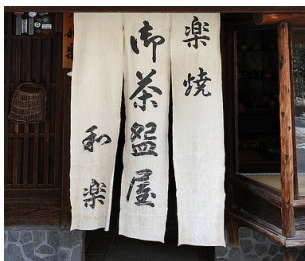 楽焼
御茶盌屋
和楽